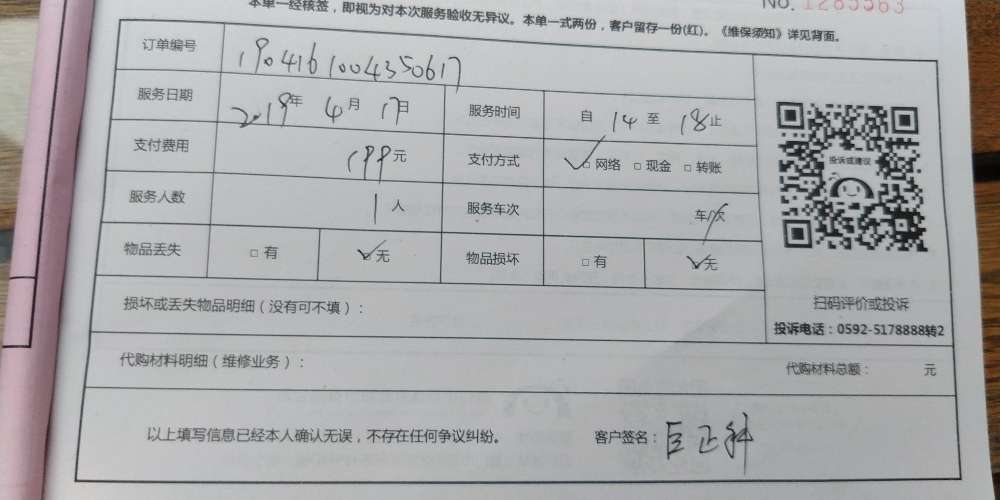 本单一经核签，即视为对本次服务验收无异议。本单一式两份，客户留存一份(红)。《维保须知》详见背面。
No. 1285563
订单编号 1904161004350617
服务日期 2019年 4月 17日 服务时间 自 14 至 18止
支付费用 199元 支付方式 ✓□网络 □现金 □转账
服务人数 1人 服务车次 车/次
物品丢失 □有 ✓□无 物品损坏 □有 ✓□无
投诉或建议
扫码评价或投诉
投诉电话：0592-5178888转2
损坏或丢失物品明细（没有可不填）：
代购材料明细（维修业务）： 代购材料总额： 元
以上填写信息已经本人确认无误，不存在任何争议纠纷。 客户签名：巨正科